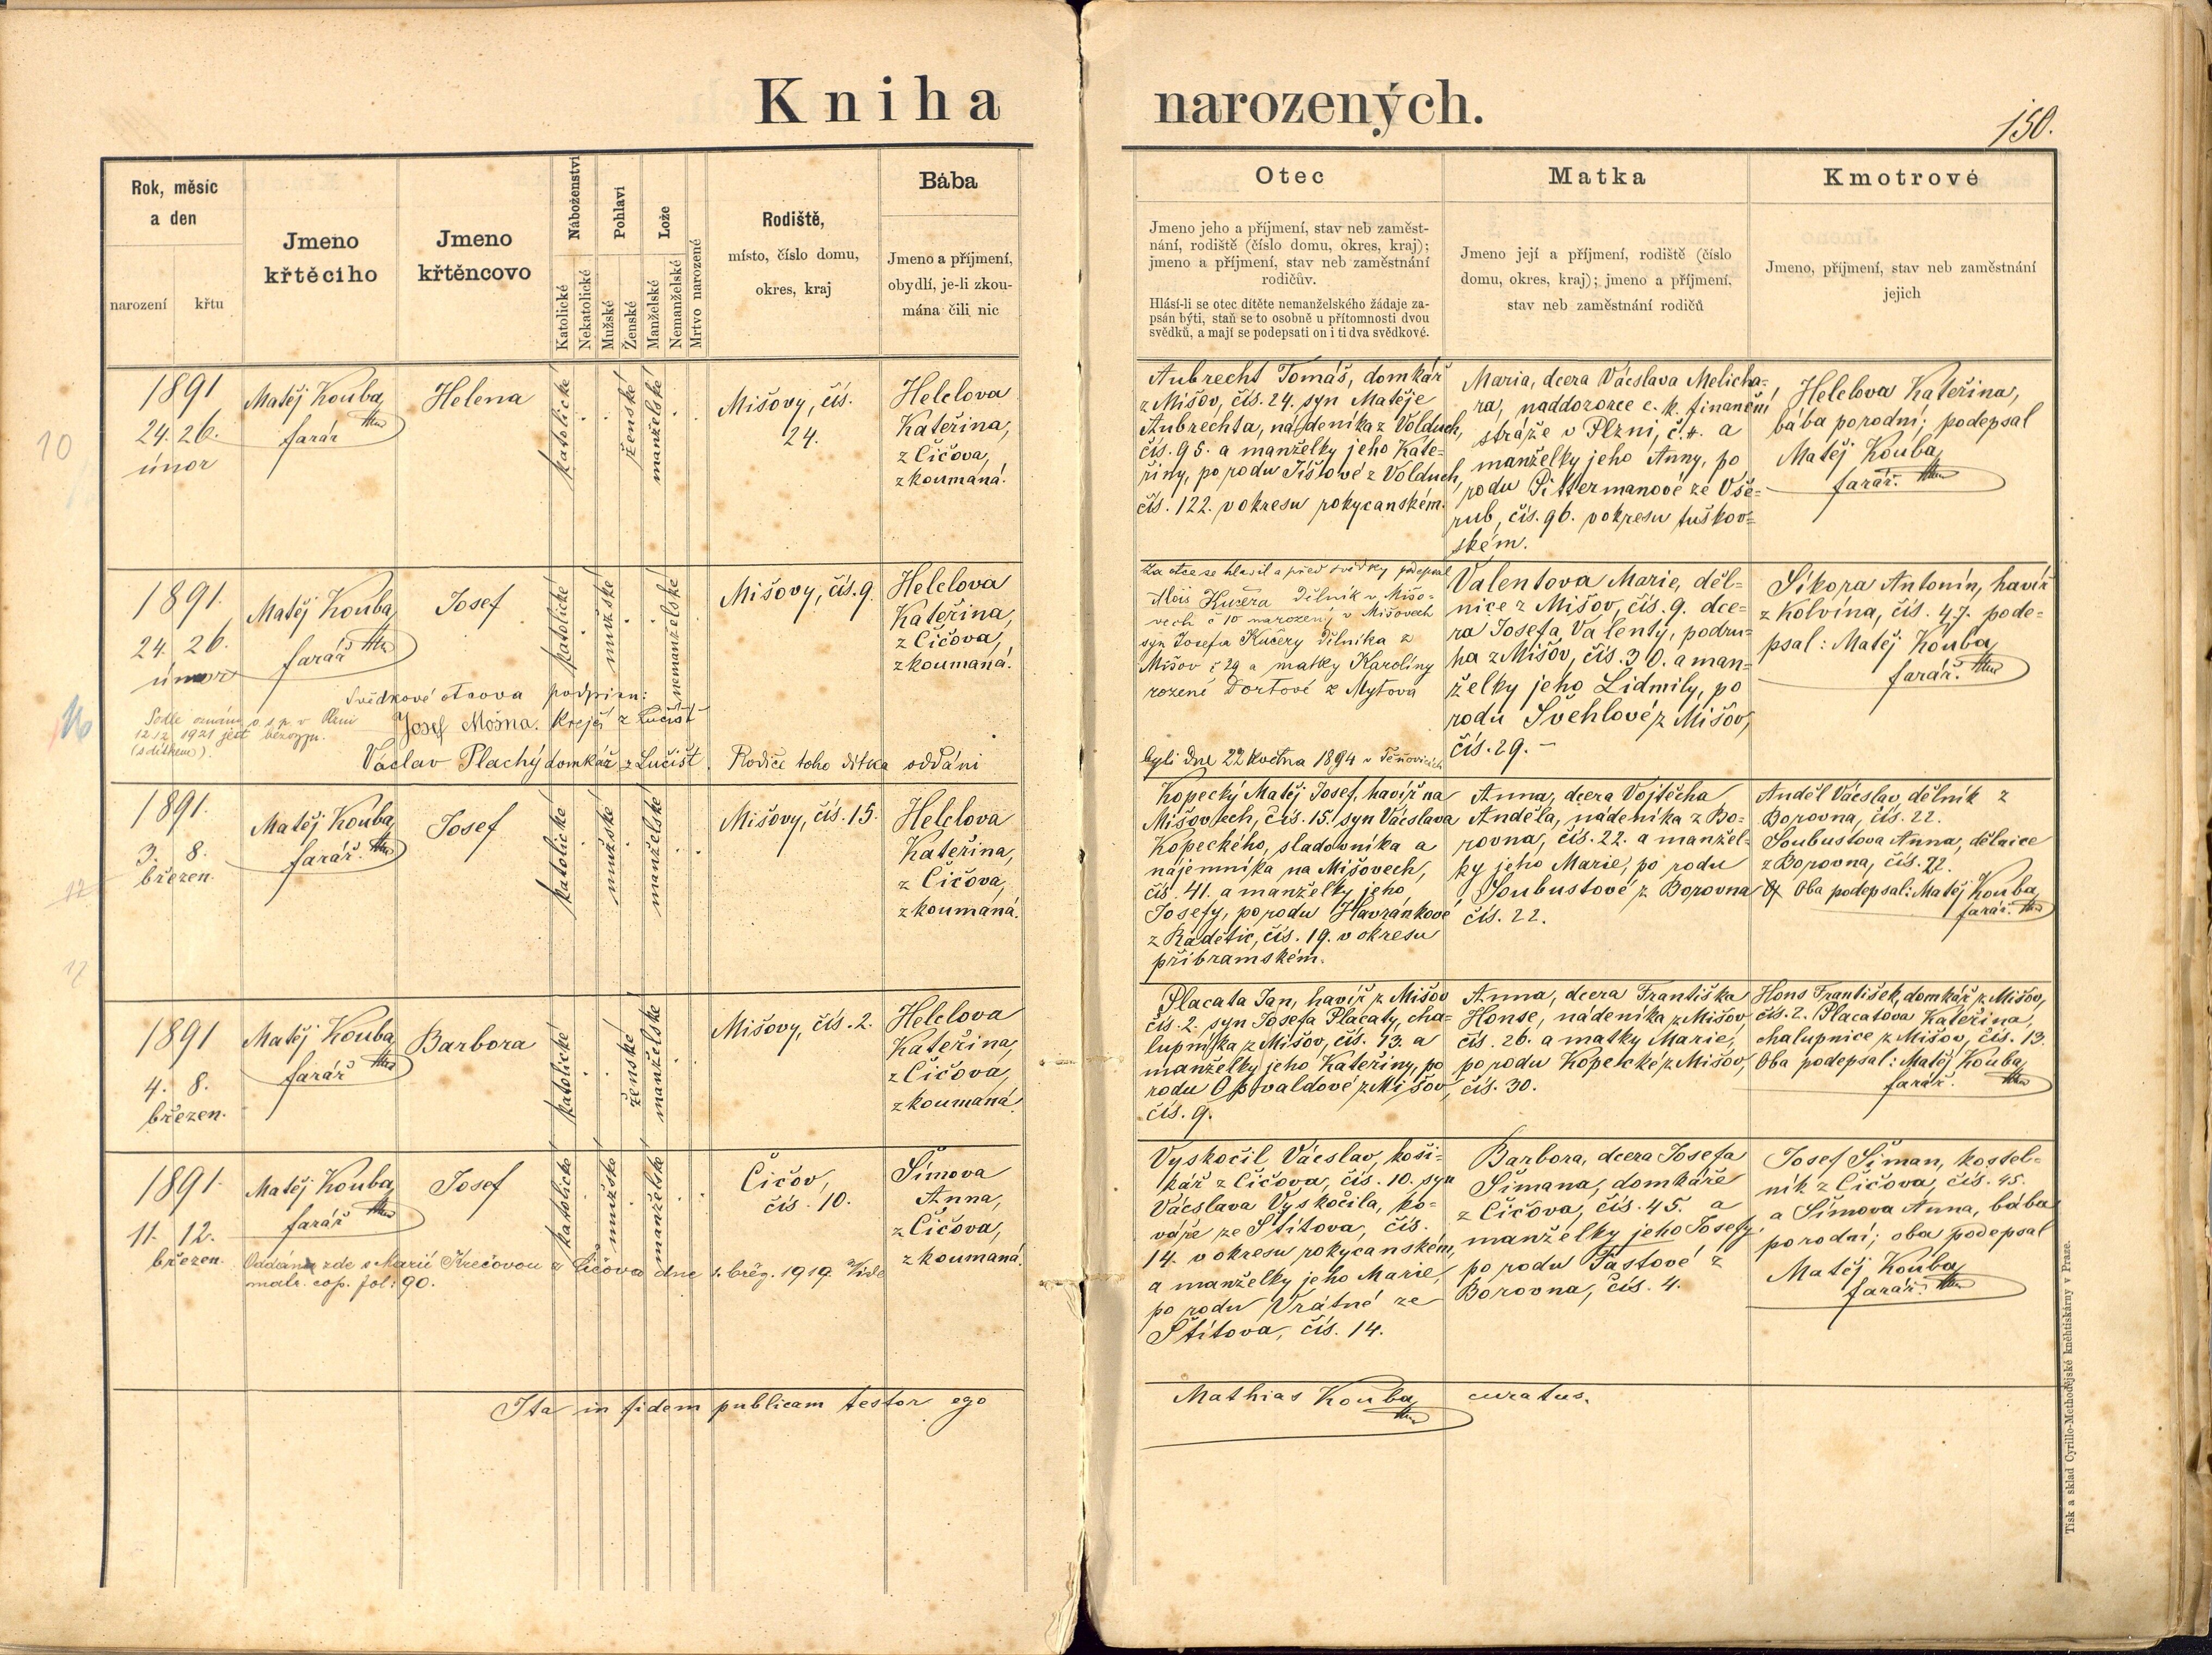 Kniha narozených.
150.
Rok, měsíc
a den
narození křtu
Jmeno
křtěcího
Jmeno
křtěncovo
Náboženství
Katolické
Nekatolické
Pohlaví
Mužské
Ženské
Lože
Manželské
Nemanželské
Mrtvo narozené
Rodiště,
místo, číslo domu,
okres, kraj
Bába
Jmeno a příjmení,
obydlí, je-li zkou-
mána čili nic
Otec
Jmeno jeho a příjmení, stav neb zaměst-
nání, rodiště (číslo domu, okres, kraj);
jmeno a příjmení, stav neb zaměstnání
rodičův.
Hlásí-li se otec dítěte nemanželského žádaje za-
psán býti, staň se to osobně u přítomnosti dvou
svědků, a mají se podepsati on i ti dva svědkové.
Matka
Jmeno její a příjmení, rodiště (číslo
domu, okres, kraj); jmeno a příjmení,
stav neb zaměstnání rodičů
Kmotrové
Jmeno, příjmení, stav neb zaměstnání
jejich
10
1891
24. 26.
únor
Matěj Kouba,
farář
Helena
katolické
ženské
manželské
Mišovy, čís.
24.
Helclova
Kateřina,
z Čičova,
zkoumaná.
Aubrecht Tomáš, domkář
z Mišov, čís. 24. syn Matěje
Aubrechta, nádeníka z Volduch,
čís. 95. a manželky jeho Kate-
řiny, po rodu Tíšlové z Volduch,
čís. 122. v okresu rokycanském.
Maria, dcera Václava Melicha-
ra, naddozorce c. k. finanční
stráže v Plzni, č. 4. a
manželky jeho Anny, po
rodu Pittermanové ze Vše-
rub, čís. 96. v okresu tuškov-
ském.
Helclova Kateřina,
bába porodní; podepsal
Matěj Kouba,
farář.
16
1891.
24. 26.
únor
Matěj Kouba,
farář
Josef
katolické
mužské
nemanželské
Mišovy, čís. 9.
Helclova
Kateřina,
z Čičova,
zkoumaná.
Svědkové otcova podpisu:
Josef Mošna. Krejčí z Lučišť
Václav Plachý domkář z Lučišť. Rodiče toho dítka oddáni
Podle oznám. o. s. p. v Plzni
12/12 1921 jest bezvyzn.
(s dítkem).
Za otce se hlásil a před svědky podepsal
Alois Kučera dělník v Mišo-
vech č 10 narozený v Mišovech
syn Josefa Kučery dělníka z
Mišov č 29 a matky Karoliny
rozené Dortové z Mytova
byli dne 22 května 1894 v Těňovicích
Valentova Marie, děl-
nice z Mišov, čís. 9. dce-
ra Josefa Valenty, podru-
ha z Mišov, čís. 30. a man-
želky jeho Lidmily, po
rodu Švehlové z Mišov,
čís. 29. –
Sikora Antonín, havíř
z Kolvína, čís. 47. pode-
psal: Matěj Kouba,
farář.
12
1891.
3. 8.
březen.
Matěj Kouba,
farář.
Josef
katolické
mužské
manželské
Mišovy, čís. 15.
Helclova
Kateřina,
z Čičova,
zkoumaná.
Kopecký Matěj Josef, havíř na
Mišovech, čís. 15. syn Václava
Kopeckého, sladovníka a
nájemníka na Mišovech,
čís. 41. a manželky jeho
Josefy, po rodu Havránkové
z Radětic, čís. 19. v okresu
příbramském.
Anna, dcera Vojtěcha
Anděla, nádeníka z Bo-
rovna, čís. 22. a manžel-
ky jeho Marie, po rodu
Soubustové z Borovna
čís. 22.
Anděl Václav, dělník z
Borovna, čís. 22.
Soubustova Anna, dělnice
z Borovna, čís. 22.
Oba podepsal: Matěj Kouba,
farář.
12
1891
4. 8.
březen.
Matěj Kouba,
farář
Barbora
katolické
ženské
manželské
Mišovy, čís. 2.
Helclova
Kateřina,
z Čičova,
zkoumaná.
Placata Jan, havíř z Mišov
čís. 2. syn Josefa Placaty, cha-
lupníka z Mišov, čís. 13. a
manželky jeho Kateřiny, po
rodu Opvaldové z Mišov,
čís. 9.
Anna, dcera Františka
Honse, nádeníka z Mišov
čís. 26. a matky Marie,
po rodu Kopelcké z Mišov,
čís. 30.
Hons František, domkář z Mišov,
čís. 2. Placatova Kateřina,
chalupnice z Mišov, čís. 13.
Oba podepsal: Matěj Kouba,
farář.
1891.
11. 12.
březen.
Matěj Kouba,
farář
Josef
katolické
mužské
manželské
Čičov,
čís. 10.
Šímova
Anna,
z Čičova,
zkoumaná.
Oddán zde s Marií Krečovou z Čičova dne 1. břez. 1919. Vide
matr. cop. fol: 90.
Vyskočil Václav, koši-
kář z Čičova, čís. 10. syn
Václava Vyskočila, ko-
váře ze Štítova, čís.
14. v okresu rokycanském,
a manželky jeho Marie,
po rodu Vrátné ze
Štítova, čís. 14.
Barbora, dcera Josefa
Šimana, domkáře
z Čičova, čís. 45. a
manželky jeho Josefy,
po rodu Tastové z
Borovna, čís. 4.
Josef Šiman, kostel-
ník z Čičova, čís. 45.
a Šímova Anna, bába
porodní; oba podepsal
Matěj Kouba,
farář.
Ita in fidem publicam testor ego Mathias Kouba, curatus.
Tisk a sklad Cyrillo-Methodějské knihtiskárny v Praze.